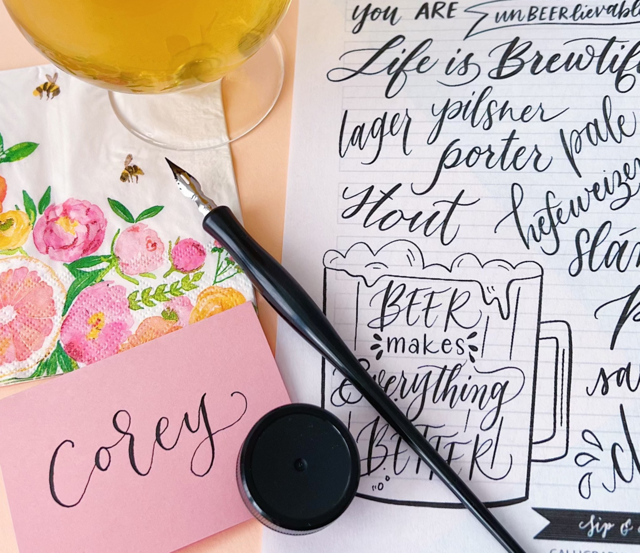 you ARE unBEERlievabl
Life is Brewtif
lager pilsner
porter pale
stout hefeweizen
slán
BEER
makes
Everything
BETTER!
Corey
Sip &